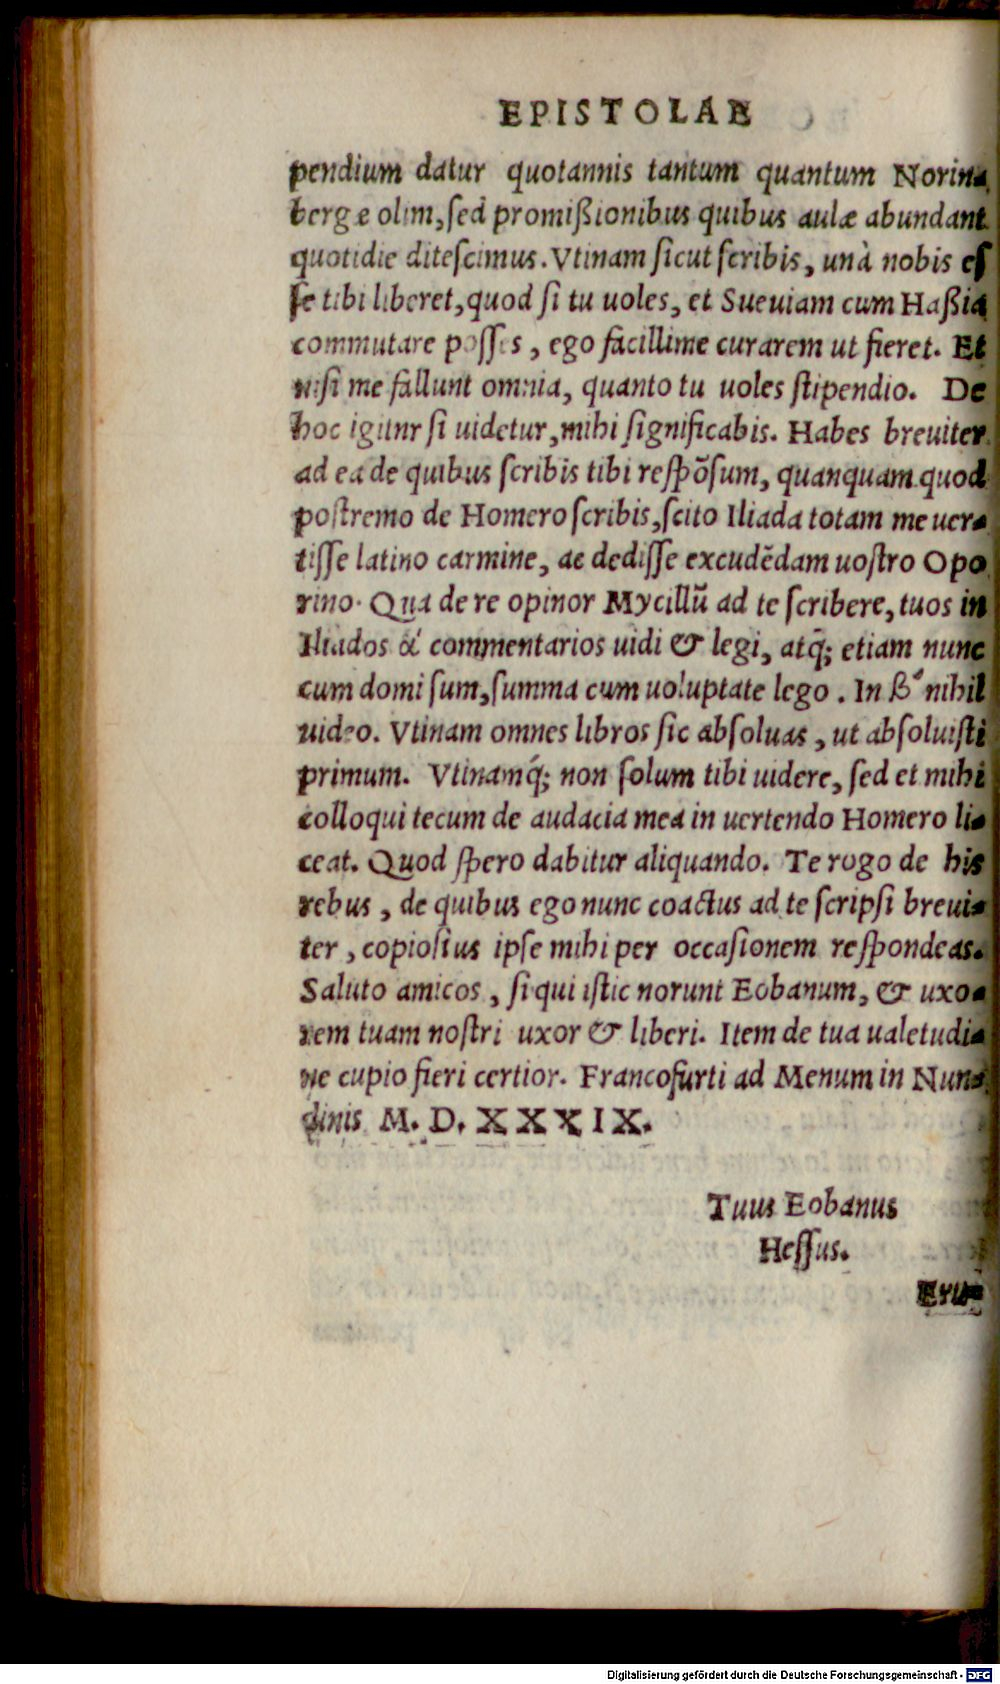 EPISTOLAE
pendium datur quotannis tantum quantum Norin-
bergæ olim, sed promißionibus quibus aulæ abundant
quotidie ditescimus. Vtinam sicut scribis, unà nobis es
se tibi liberet, quod si tu uoles, et Sueuiam cum Haßia
commutare posses, ego facillime curarem ut fieret. Et
nisi me fallunt omnia, quanto tu uoles stipendio. De
hoc igitnr si uidetur, mihi significabis. Habes breuiter
ad ea de quibus scribis tibi respõsum, quanquam quod
postremo de Homero scribis, scito Iliada totam me uer-
tisse latino carmine, ac dedisse excudẽdam uostro Opo
rino. Qua de re opinor Mycillũ ad te scribere, tuos in
Iliados α´ commentarios uidi & legi, atq; etiam nunc
cum domi sum, summa cum uoluptate lego. In β´ nihil
uideo. Vtinam omnes libros sic absoluas, ut absoluisti
primum. Vtinamq́; non solum tibi uidere, sed et mihi
colloqui tecum de audacia mea in uertendo Homero li-
ceat. Quod spero dabitur aliquando. Te rogo de his
rebus, de quibus ego nunc coactus ad te scripsi breui-
ter, copiosius ipse mihi per occasionem respondeas.
Saluto amicos, si qui istic norunt Eobanum, & uxo-
rem tuam nostri uxor & liberi. Item de tua ualetudi-
ne cupio fieri certior. Francofurti ad Menum in Nun-
dinis M. D. XXXIX.
Tuus Eobanus
Hessus.
Eru-
Digitalisierung gefördert durch die Deutsche Forschungsgemeinschaft - DFG